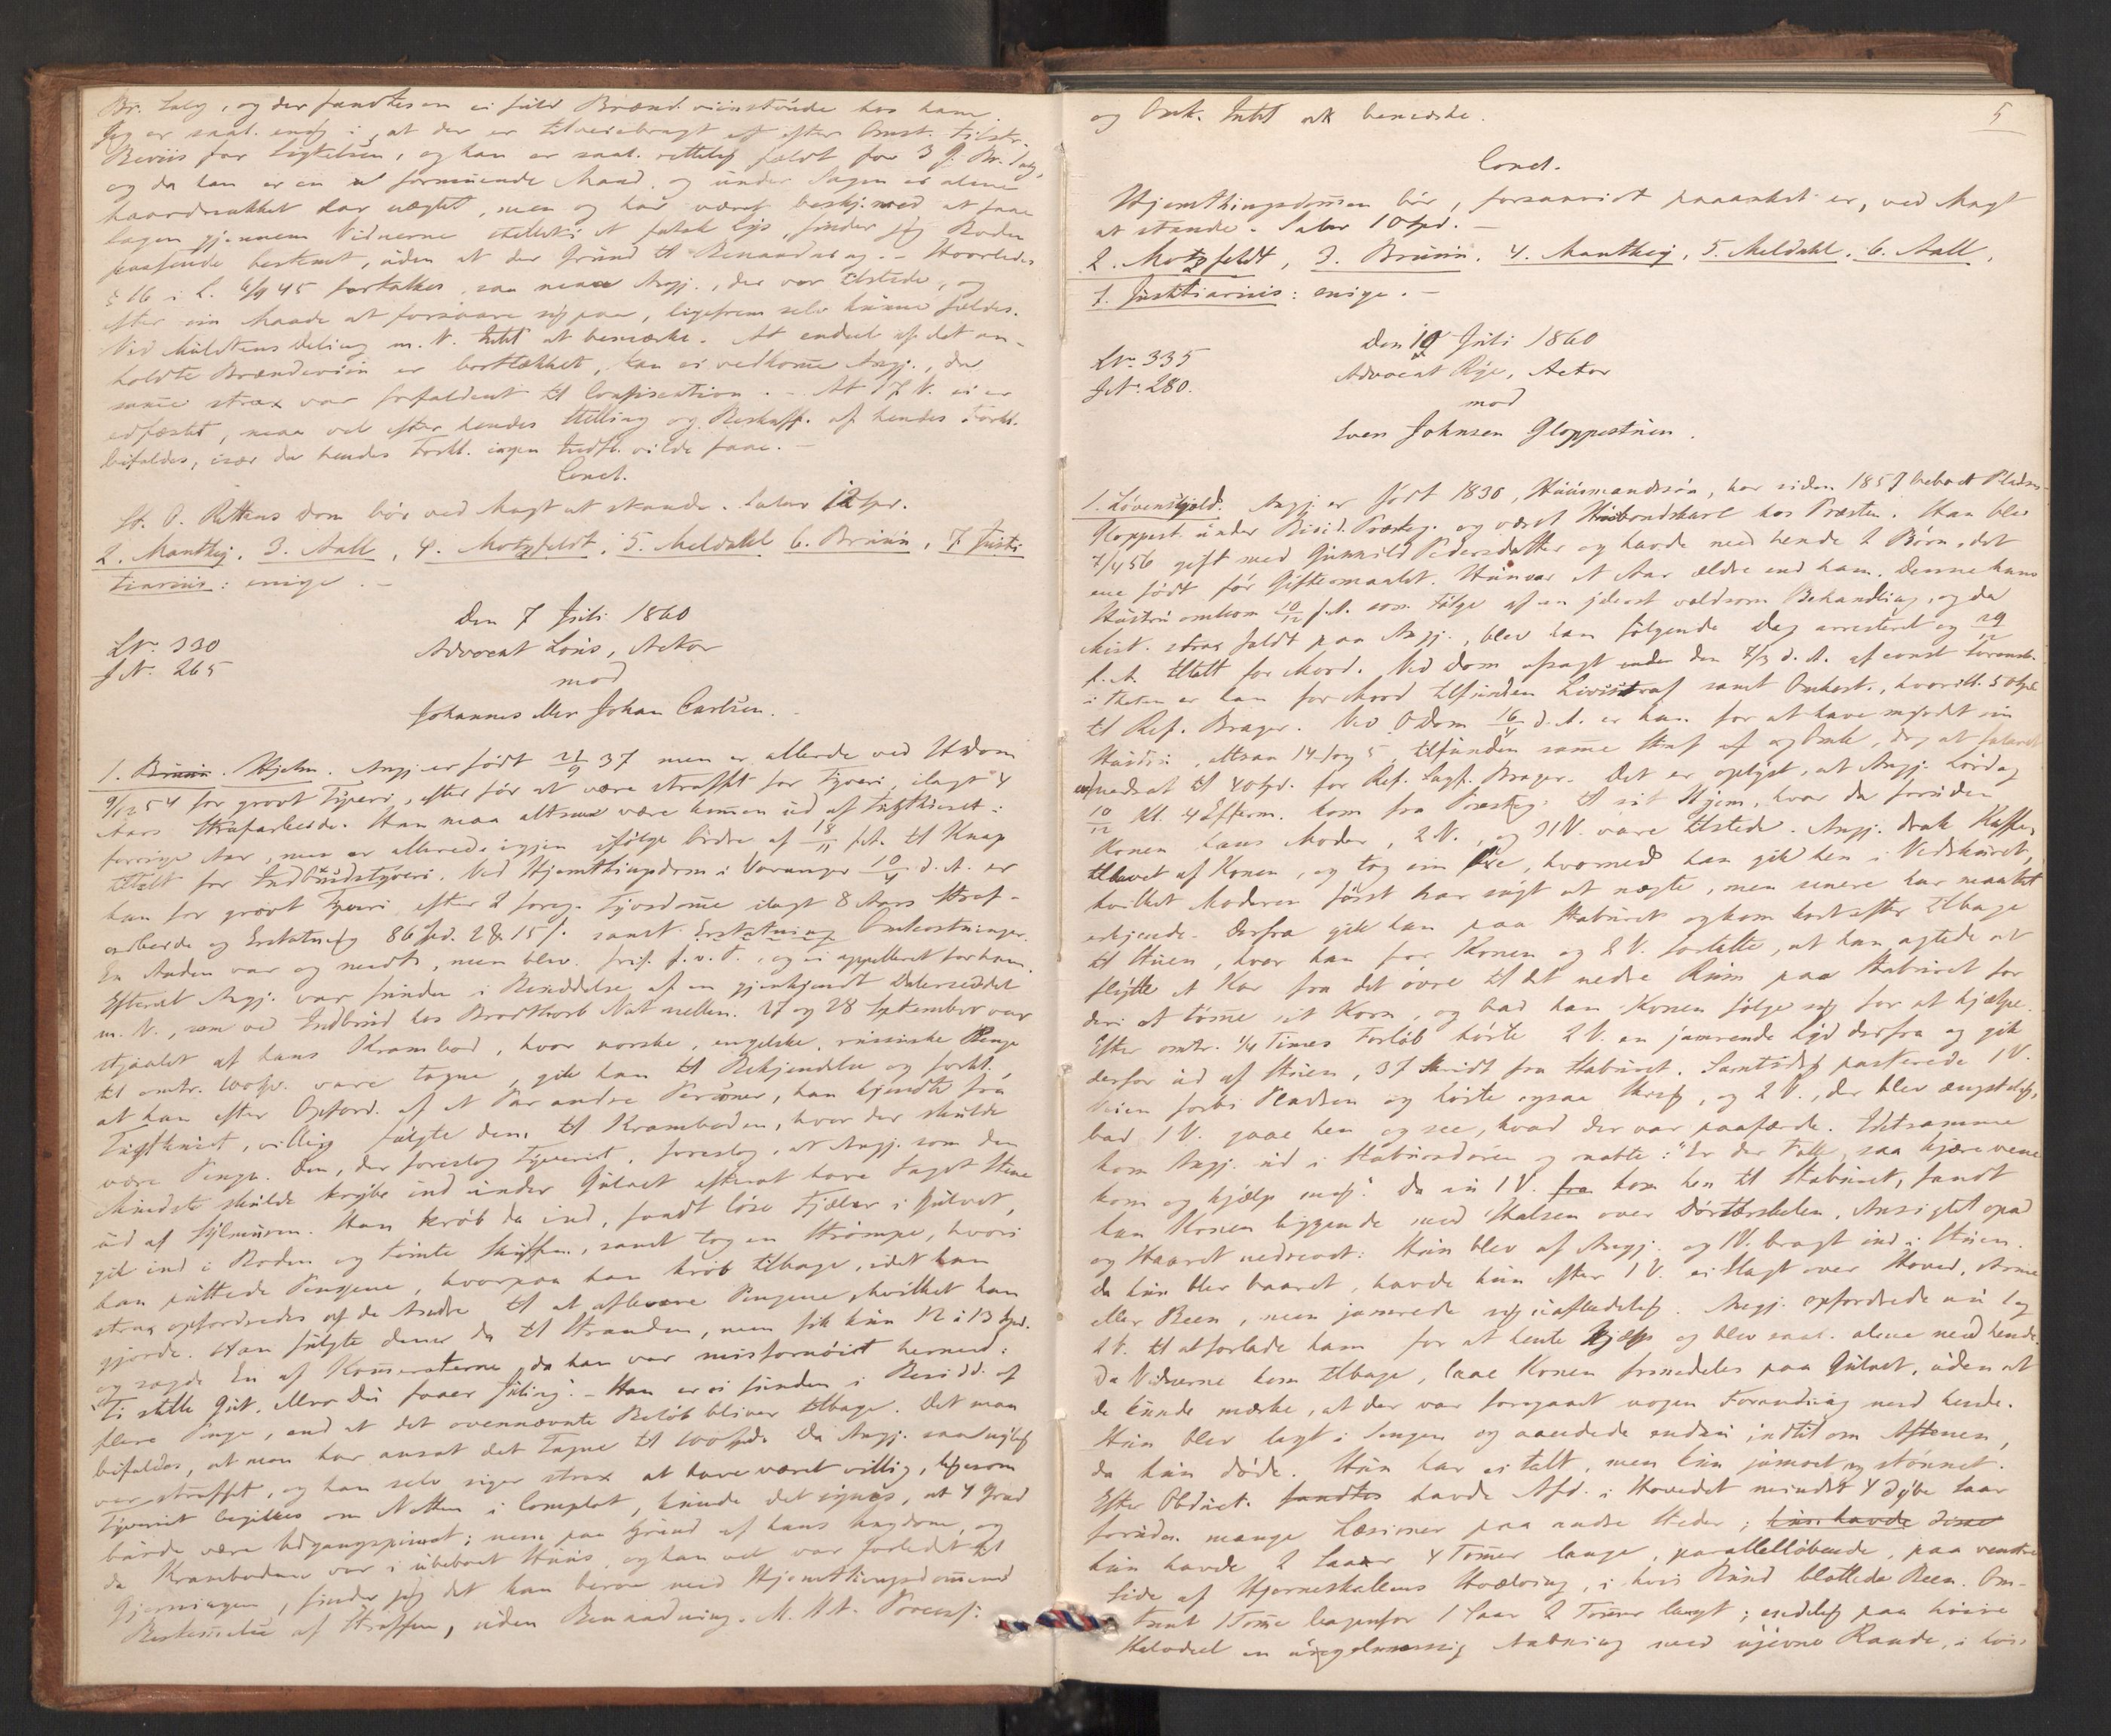 Br. Salg, og der fandtes en ei fuld Brændeviinstønde hos ham.
Jeg er saal. enig i, at der er tilveiebragt et efter Omst. tilstr.
Beviis for Sigtelsen, og han er saal. rettelig fældt for 3 G. Br. Salg,
og da han er en formuende Mand, og under Sagen ei alene
haardnakket har nægtet, men og har været beskj. med at faae
Sagen gjennem Vidnerne stillet i et falsk Lys, finder jeg Boden
passende bestemt, uden at der Grund til Benaadning. - Hvorledes
§ 16 i L. 6/9 45 fortolkes, saa maa Angj., der var tilstede, og
efter sin Maade at forsvare sig paa, ligefrem selv kunne fældes.
Ved Mulktens Deling m. V. Intet at bemærke. At endeel af det an-
holdte Brændeviin er bortlækket, kan ei vedkomme Angj., da
samme strax var forfaldent til Confiscation. - At 7 V. ei er
edfæstet, maa vel efter hendes Stilling og Beskaff. af hendes Forkl.
bifaldes, især da hendes Forkl. ingen Indfl. vilde faae. -
Concl.
St. O. Rettens Dom bør ved Magt at stande. Salær 12 Spd.
2. Manthey, 3. Aall, 4. Motzfeldt, 5. Meldahl 6. Bruun, 7 Justi
tiarius: enige. -
Den 7 Juli 1860
LNo 330
Advocat Lous, Actor
JNo 265
mod
Johannes eller Johan Carlsen. -
1. Bruun. Hjelm. Angj. er født 21/9 37 men er allerede ved Udom
9/12 54 for grovt Tyveri, efter før at være straffet for Tyveri, ilagt 4
Aars Strafarbeide. Han maa altsaa være kommen ud af Tugthuset i
forrige Aar, men er allerede igjen ifølge Ordre af 18/11 f.A. til Knap
tiltalt for Indbrudstyveri. Ved Hjemthingsdom i Varanger 10/4 d. A. er
han for grovt Tyveri efter 2 foreg. Tyvsdomme ilagt 8 Aars Straf-
arbeide og Erstatning 86 Spd. 2 15 s. samt Erstatning Omkostninger.
En Anden var og med, men blev frif. f. v. T., og ei appelleret for ham.
Efterat Angj. var funden i Besiddelse af en gjenkjendt Dalerseddel
m. V., som ved Indbrud hos Brodtkorb Nat mellem 27 og 28 September var
stjaalet af hans Krambod, hvor norske, engelske, russiske Penge
til omtr. 100 Spd. vare tagne, gik han til Bekjendelse og forkl.,
at han efter Opford. af et Par andre Personer, han kjendte fra
Tugthuset, villig fulgte dem til Kramboden, hvor der skulde
være Penge. Den, der foreslog Tyveriet, foreslog, at Angj. som den
Mindste skulde krybe ind under Gulvet efterat have taget Stene
ud af Sylmuren. Han krøb da ind, fandt løse Fjæler i Gulvet,
gik ind i Boden og tømte Skuffen, samt tog en Strømpe, hvori
han puttede Pengene, hvorpaa han krøb tilbage, idet han
strax opfordredes af de Andre til at aflevere Pengene, hvilket han
gjorde. Han fulgte dem da til Stranden, men fik kun 12 à 13 Spd.
og sagde En af Kammeraterne, da han var misfornøiet hermed:
"Ti stille Gut, eller Du faaer Juling". - Han er ei funden i Besidd. af
flere Penge, end at det ovennævnte Beløb bliver tilbage. Det maa
bifaldes, at man har ansat det Tagne til 100 Spd. Da Angj. saa nylig
var straffet, og han selv siger strax at have været villig, ligesom
Tyveriet begikkes om Natten i Complot, kunde det synes, at 4 Grad
burde være Udgangspunct; men paa Grund af hans Ungdom, og
da Kramboden var i ubeboet Huus, og han vel var forledet til
Gjerningen, finder jeg det kan beroe med Hjemthingsdommens
Bestemmelse af Straffen, uden Benaadning. M. H. t. Process:
5
og Omk. Intet at bemærke.
Concl.
Hjemthingsdommen bør, forsaavidt paaanket er, ved Magt
at stande. Salær 10 Spd. -
2. Motzfeldt, 3. Bruun, 4. Manthey, 5. Meldahl, 6. Aall,
7. Justitiarius: enige. -
Den 10 Juli 1860
LNo 335
Advocat Rye, Actor
JNo 280.
mod
Sven Johnsen Gloppestuen.
1. Løvenskjold. Angj. er født 1830, Huusmandssøn, har siden 1857 beboet Pladsen
Gloppest. under Præsteg. og været Husbondskarl hos Præsten. Han blev
7/4 56 gift med Gunhild Pedersdatter og havde med hende 2 Børn, det
ene født før Giftermaalet. Hun var et Aar ældre end ham. Denne hans
Hustru omkom 10/12 f.A. som Følge af en yderst voldsom Behandling, og da
Mist. strax faldt paa Angj., blev han følgende Dag arresteret og 29/12
f. A. tiltalt for Mord. Ved Dom afsagt den 7/3 d. A. af const. Sorensk.
i Thelen er han for Mord tilfunden Livsstraf samt Omkost., hvorill. 50 Spd.
til Ref. Brager. Ved ODom 16/4 d. A. er han for at have myrdet sin
Hustru, altsaa 14-1 og 5, tilfunden samme Straf og Omk., dog at Salæret
nedsat til 40 Spd. for Ref. Sagf. Brager. Det er oplyst, at Angj. Lørdag
10/12 Kl. 4 Efterm. kom fra Præsteg. til sit Hjem, hvor da foruden
Konen hans Moder, 2 V., og 21 V. vare tilstede. Angj. drak Kaffe,
tillavet af Konen, og tog sin Øxe, hvormed han gik hen i Vedskuret,
hvilket Moderen først har søgt at nægte, men senere har maattet
erkjende. Derfra gik han paa Staburet og kom kort efter tilbage
til Stuen, hvor han for Konen og 2 V. fortalte, at han agtede at
flytte et Kar fra det øvre til det nedre Rum paa Staburet for
deri at tømme sit Korn, og bad han Konen følge sig for at hjælpe.
Efter omtr. 1/4 Times Forløb hørte 2 V. en jamrende Lyd derfra og gik
derfor ud af Stuen, 37 Skridt fra Staburet. Samtidig passerede 1 V.
Veien forbi Pladsen og hørte ogsaa Skrig, og 2 V., der blev ængstelig,
bad 1 V. gaae hen og see, hvad der var paafærde. Idetsamme
kom Angj. ud i Staburdøren og raabte: "Er der Folk, saa kjære vene
kom og hjælp mig". Da nu 1 V. kom hen til Staburet, fandt
han Konen liggende med Halsen over Dørtærskelen, Ansigtet opad
og Haaret nedrevet. Hun blev af Angj. og 1 V. bragt ind i Stuen.
Da hun blev baaret, havde hun efter 1 V. ei Magt over Hoved, Arme
eller Been, men jamrede sig uafladelig. Angj. opfordrede nu 1 og
2 V. til at forlade ham for at hente Hjælp og blev saal. alene med hende.
Da Vidnerne kom tilbage, laae Konen fremdeles paa Gulvet, uden at
de kunde mærke, at der var foregaaet nogen Forandring med hende.
Hun blev lagt i Sengen og aandede endnu indtil om Aftenen,
da hun døde. Hun har ei talt, men kun jamret og stønnet.
Efter Obduct. fandtes havde Afd. i Hovedet mindst 4 dybe Saar
foruden mange Læsioner paa andre Steder; hun havde disse
hun havde 2 Saar 4 Tommer lange, parallelløbende, paa venstre
Side af Hjerneskallens Hvælving, i hvis Bund blottede Been. Om-
trent 1 Tomme bagenfor 1 Saar 2 Tommer langt; endelig paa høire
Halvdeel en uregelmæssig Aabning med ujevne Rande, i hvis